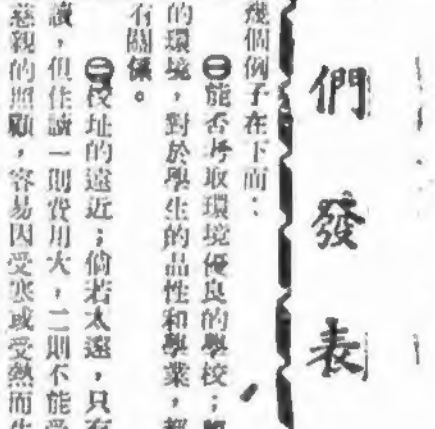 們發表
幾個例子在下面：
㊀能否考取環境優良的學校；
的環境，對於學生的品性和學業，都
有關係。
㊁校址的遠近；倘若太遠，只有
讀，但住讀一則費用大，二則不能受
慈親的照顧，容易因受寒或受熱而生